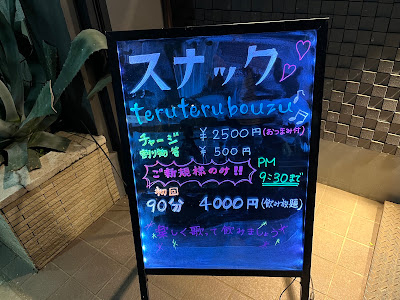 スナック
teruterubouzu
チャージ ￥2500円(おつまみ付)
割り物等 ￥500円
ご新規様のみ!! PM 9:30まで
初回
90分 4000円(飲み放題)
楽しく歌って飲みましょう